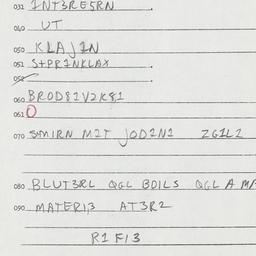 031 INT3RESRN
040 UT
050 KLAJ1N
051 S+PR1NKLAX
052
060 BROD81V2K81
061 O
070 SM1RN M2T JOD1N1 2G1L2
080 BLUT3RL QGL BO1LS QGL A MA
090 MATER1,3 AT3R2
R1 F13